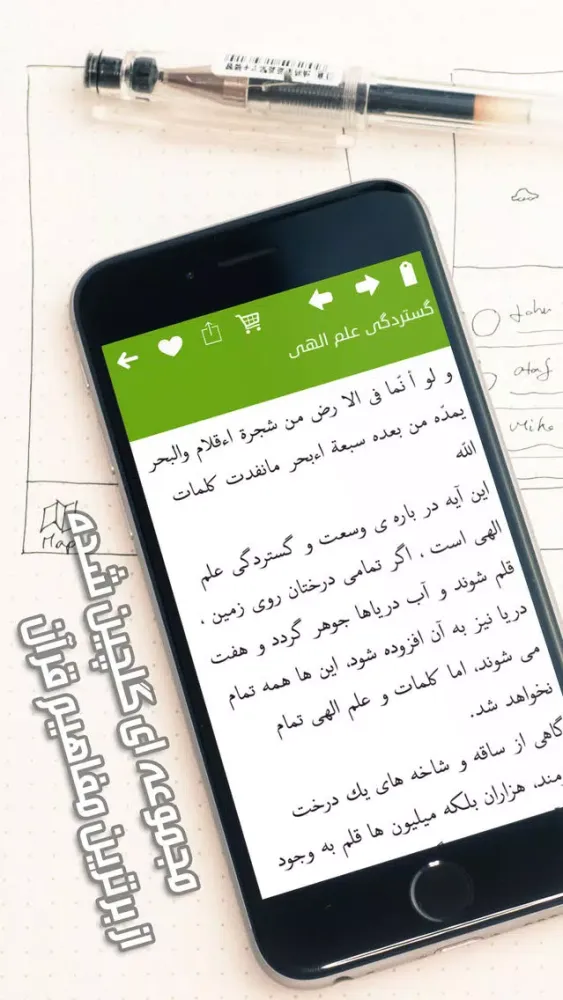 گستردگی علم الهی
و لو أ نّما فی الا رض من شجرة اءقلام والبحر
یمدّه من بعده سبعة اءبحر مانفدت کلمات
الله
این آیه در باره ی وسعت و گستردگی علم
الهی است ، اگر تمامی درختان روی زمین ،
قلم شوند و آب دریاها جوهر گردد و هفت
دریا نیز به آن افزوده شود، این ها همه تمام
می شوند، اما کلمات و علم الهی تمام
نخواهد شد.
گاهی از ساقه و شاخه های یك درخت
مند، هزاران بلکه میلیون ها قلم به وجود
مجموعه ای گلچین شده
از برترین مفاهیم قرآن
Map
John
Mike